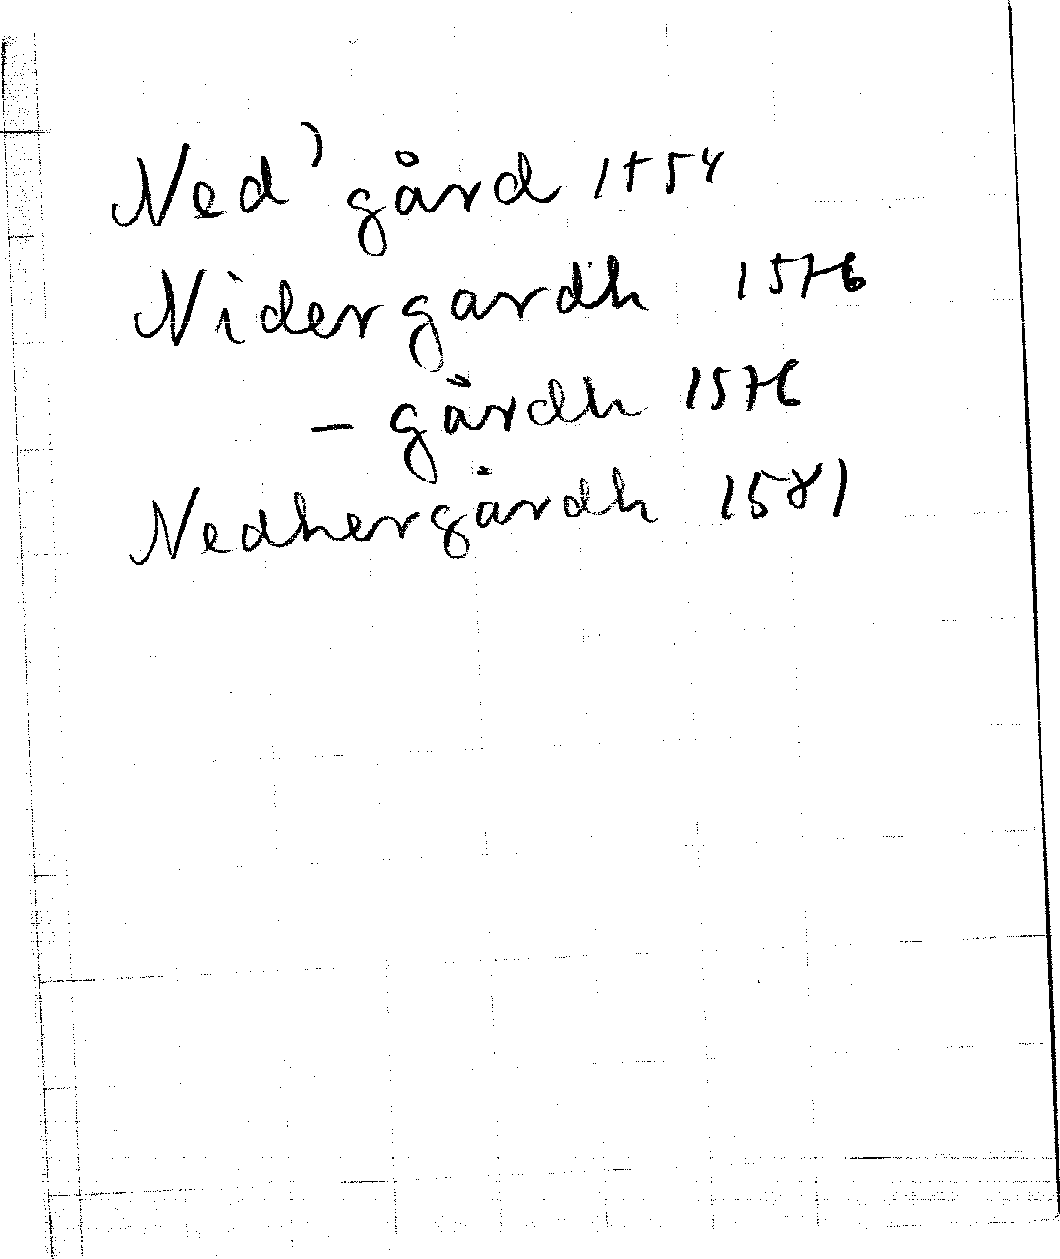 Ned' gård 1554
Nidergardh 1576
- gårdh 1576
Nedhergårdh 1581